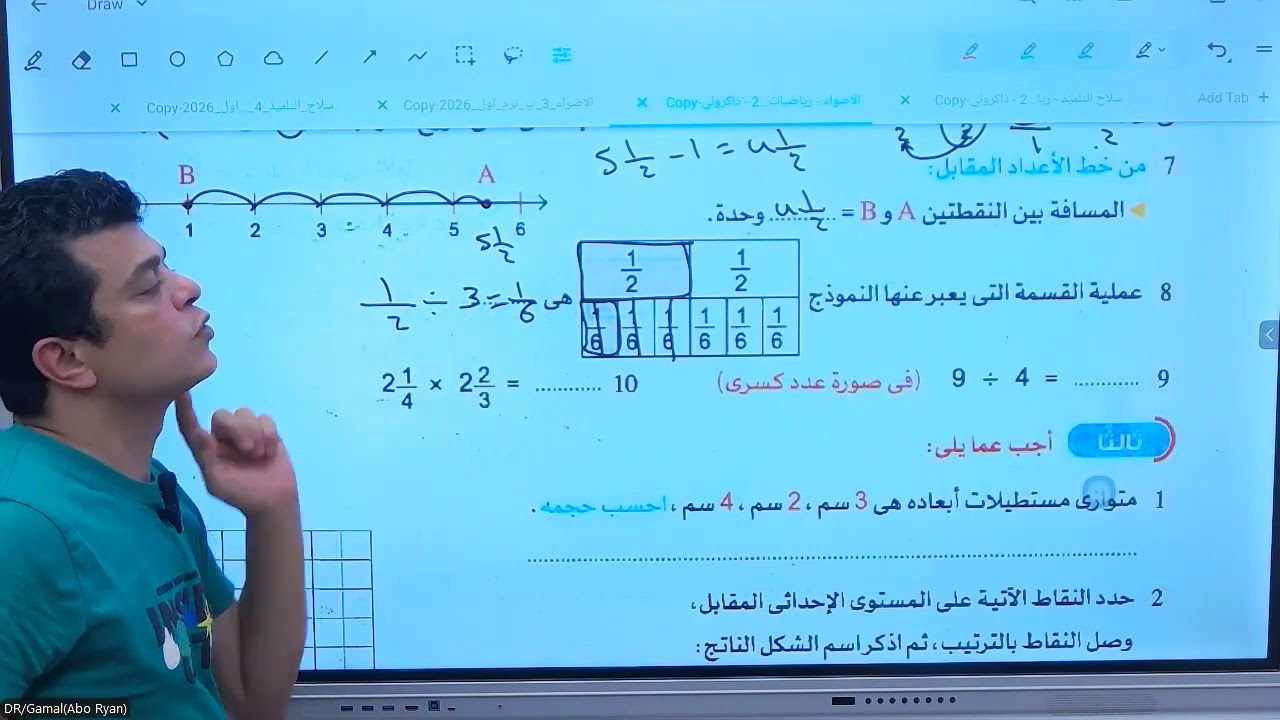 Draw
سلاح_التلميذ_4_...اول_2026-Copy
الاضواء_3_ب_ترم_اول_2026-Copy
الاضواء - رياضيات...2 - ذاكرولي-Copy
سلاح التلميذ - ريا...2 - ذاكرولي-Copy
Add Tab +
5 1/2 - 1 = 4 1/2
7 من خط الأعداد المقابل:
المسافة بين النقطتين A و B = 4 1/2 وحدة.
B A
1 2 3 4 5 5 1/2 6
8 عملية القسمة التى يعبر عنها النموذج
1/2 1/2
1/6 1/6 1/6 1/6 1/6 1/6
هى 1/2 ÷ 3 = 1/6
9 9 ÷ 4 = ............ (فى صورة عدد كسرى)
10 2 1/4 × 2 2/3 = ............
ثالثًا أجب عما يلى:
1 متوازى مستطيلات أبعاده هى 3 سم ، 2 سم ، 4 سم ، احسب حجمه .
2 حدد النقاط الآتية على المستوى الإحداثى المقابل،
وصل النقاط بالترتيب، ثم اذكر اسم الشكل الناتج:
DR/Gamal(Abo Ryan)